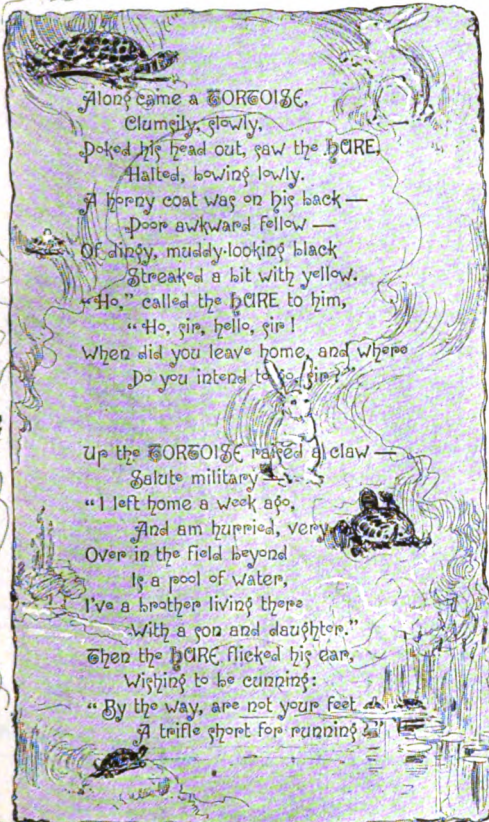 Along came a TORTOISE,
Clumsily, slowly,
Poked his head out, saw the HARE,
Halted, bowing lowly.
A horny coat was on his back —
Poor awkward fellow —
Of dingy, muddy-looking black
Streaked a bit with yellow.
"Ho," called the HARE to him,
"Ho, sir, hello, sir!
When did you leave home, and where
Do you intend to go, sir?"
Up the TORTOISE raised a claw —
Salute military —
"I left home a week ago,
And am hurried, very.
Over in the field beyond
Is a pool of water,
I've a brother living there
With a son and daughter."
Then the HARE flicked his ear,
Wishing to be cunning:
"By the way, are not your feet
A trifle short for running?"